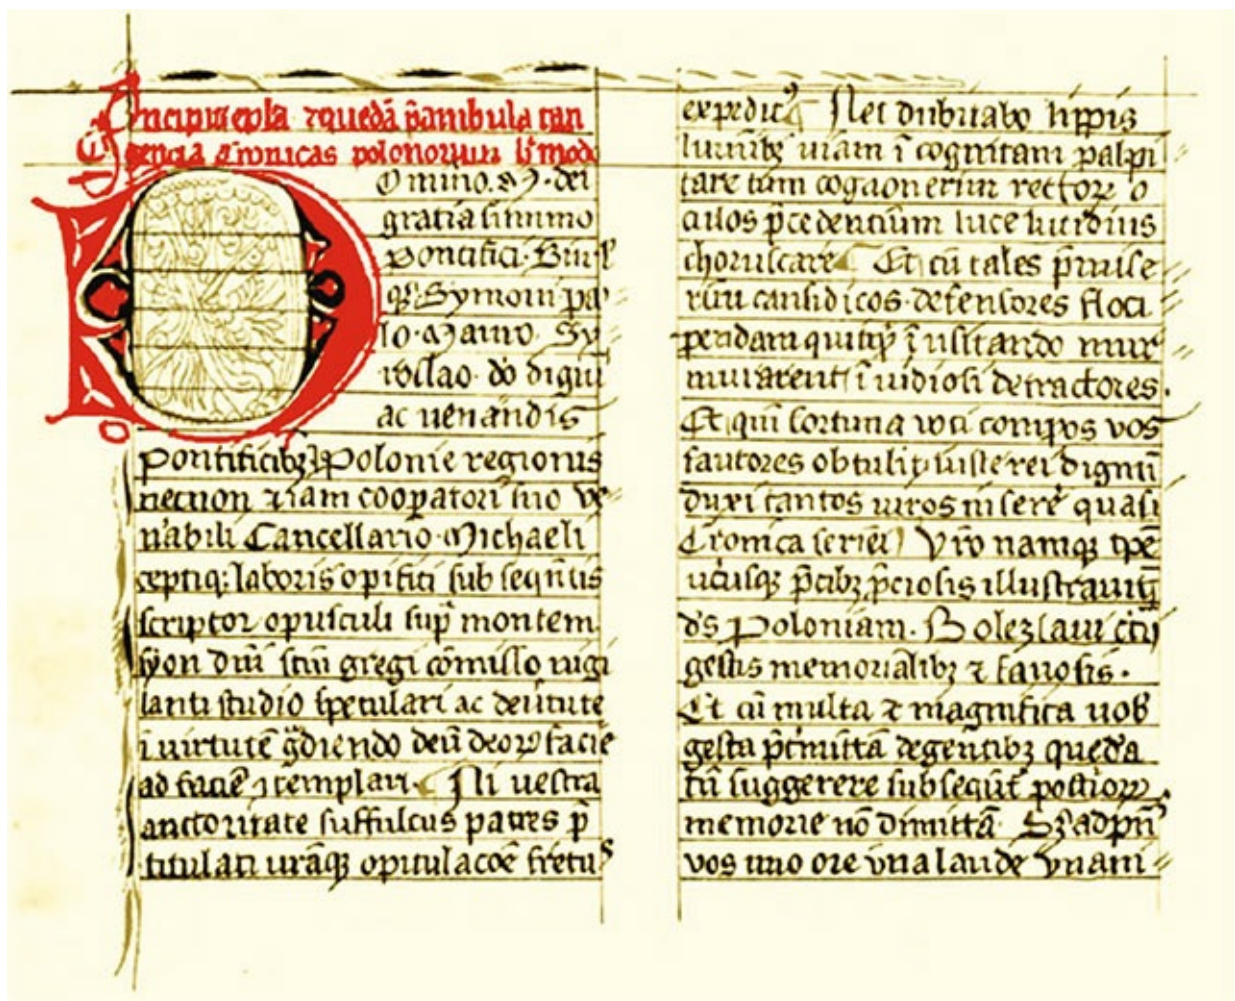 Incipit epla ⁊ quedā p̄ambula tan
gencia Cronicas polonorum
Omino. M. dei
gratia summo
Pontifici. Simul
qꝫ Symoni pa
lo. Mauro. Sy
roslao. dō dignis
ac uenandis
Pontificibꝫ Polonie regionis
necnon ⁊iam coopatori suo Ve
n'abili Cancellario Michaeli
ceptiqꝫ laboris opifici subseqn̄tis
scriptor opusculi sup̄ montem
syon dn̄i stn̄ gregi cōmisso uigi
lanti studio speculari ac deuirtute
ī uirtutē g̾diendo deū deoꝝ facie
ad faciē ɔtemplari. Ni uestra
auctoritate suffulcus patres p̄
titulati urāqꝫ opitulacōe fretus
expedic⁹ Nec dubitabo lippis
luminibꝫ uiam ī cognitam palpi
tare tum cognouerim rectoꝝ o
culos p̄cedentium luce lucidius
choruscare Et cū tales p̄uise
rim causidicos defensores floci
pendam quitqꝫ ī usitando mur
murarent ī uidiosi detractores.
Et quī fortuna uoti compos vos
fautores obtulit iuste rei dignū
duxi tantos uiros inserere quasi
Cronica seriei Vr̄o namqꝫ tp̄e
ur̄isqꝫ p̄cibꝫ p̄ciosis illustrauit
d's Poloniam. Bolezlaui ctij
gestis memorialibꝫ ⁊ famosis.
Et cū multa ⁊ magnifica uob
gesta p̄t'mittā degentibꝫ quedā
tn̄ suggerere subseqūt postioꝝ
memorie nō dimittā. Sꝫ ad p̄n̄s
vos uno ore vna laude vnani